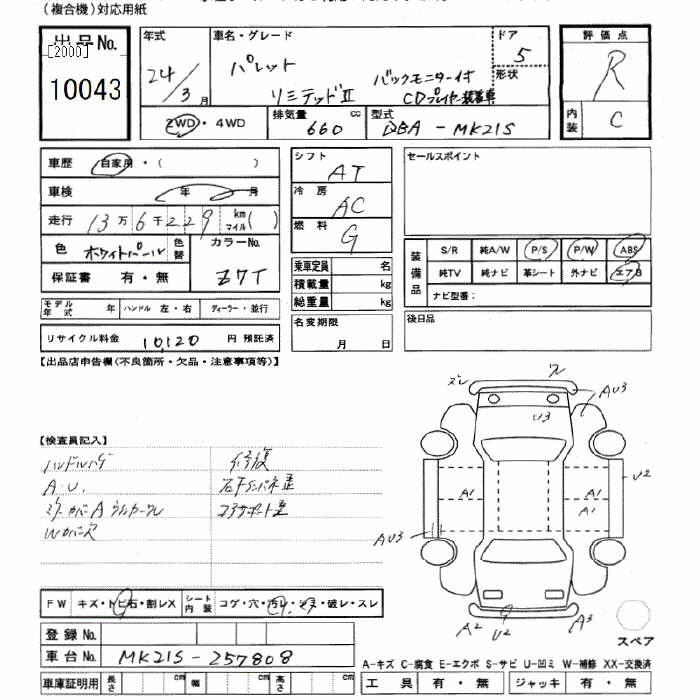 (複合機)対応用紙
出品No.
[2000]
10043
年式
24/3月
車名・グレード
パレット
リミテッドⅡ
バックモニター付
CDプレイヤー装着車
ドア
5
形状
評価点
R
内装
C
2WD・4WD
排気量
660cc
型式
DBA-MK21S
車歴
自家用・( )
車検
年 月
走行
13万6千229 km マイル( )
色
ホワイトパール
色替
カラーNo.
Z7T
保証書 有・無
モデル年式 年
ハンドル 左・右
ディーラー・並行
リサイクル料金 10,120 円 預託済
シフト
AT
冷房
AC
燃料
G
乗車定員 名
積載量 kg
総重量 kg
名変期限
月 日
セールスポイント
装備品
S/R 純A/W P/S P/W ABS
純TV 純ナビ 革シート 外ナビ エアB
ナビ型番:
後日品
【出品店申告欄(不良箇所・欠品・注意事項等)】
【検査員記入】
A・U.
修復
コアサポート歪
AU3
U3
U2
A1
A1
A1
AU3
A2
U2
A3
スペア
FW キズ・トビ石・割レX
シート内装 コゲ・穴・汚レ・シミ・破レ・スレ
登録No.
車台No. MK21S-257808
車庫証明用 長さ cm 幅 cm 高さ cm
A-キズ C-腐食 E-エクボ S-サビ U-凹ミ W-補修 XX-交換済
工具 有・無 ジャッキ 有・無